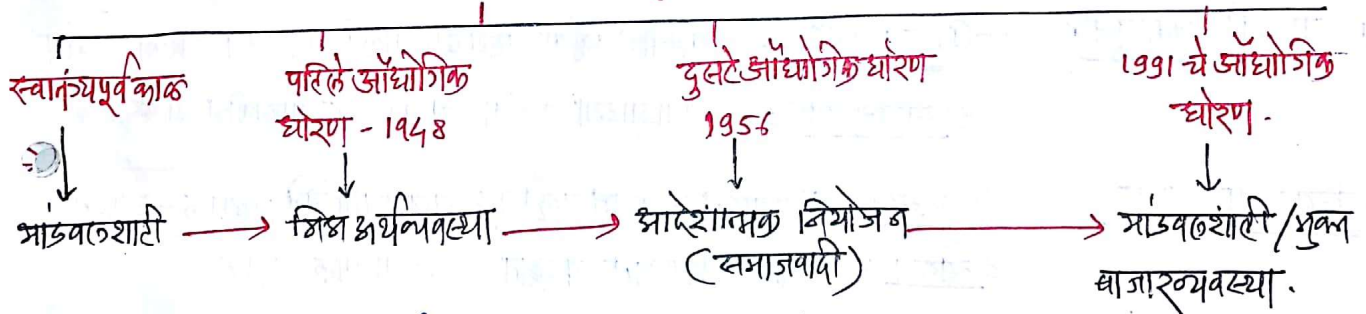 स्वातंत्र्यपूर्व काळ
पहिले औद्योगिक
धोरण - 1948
दुसरे औद्योगिक धोरण
1956
1991 चे औद्योगिक
धोरण.
भांडवलशाही → मिश्र अर्थव्यवस्था → आदेशात्मक नियोजन → भांडवलशाही / मुक्त
(समाजवादी)
बाजारव्यवस्था.